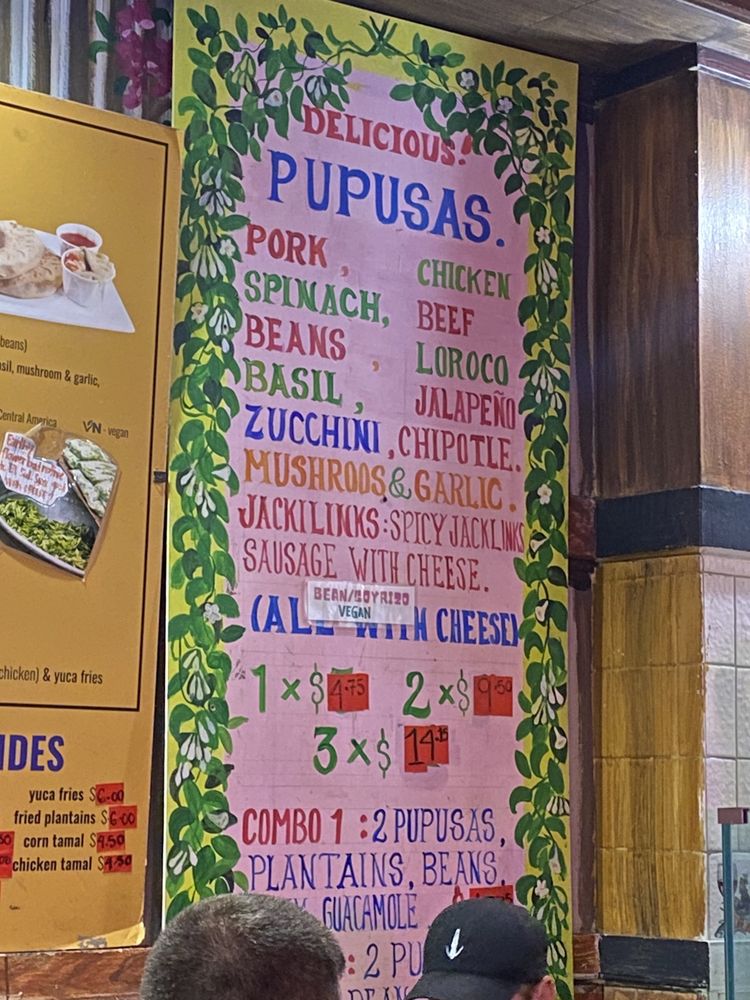 DELICIOUS!
PUPUSAS.
PORK,
CHICKEN
SPINACH,
BEEF
BEANS,
LOROCO
BASIL,
JALAPEÑO
ZUCCHINI, CHIPOTLE.
MUSHROOS & GARLIC.
JACKILINKS: SPICY JACKLINKS
SAUSAGE WITH CHEESE.
BEAN/SOYRIZO
VEGAN
(ALL WITH CHEESE)
1 x $4.75
2 x $9.50
3 x $14.15
COMBO 1: 2 PUPUSAS,
PLANTAINS, BEANS,
GUACAMOLE
: 2 PU
beans)
sil, mushroom & garlic,
Central America
VN - vegan
chicken) & yuca fries
IDES
yuca fries $6.00
fried plantains $6.00
corn tamal $4.50
chicken tamal $4.50